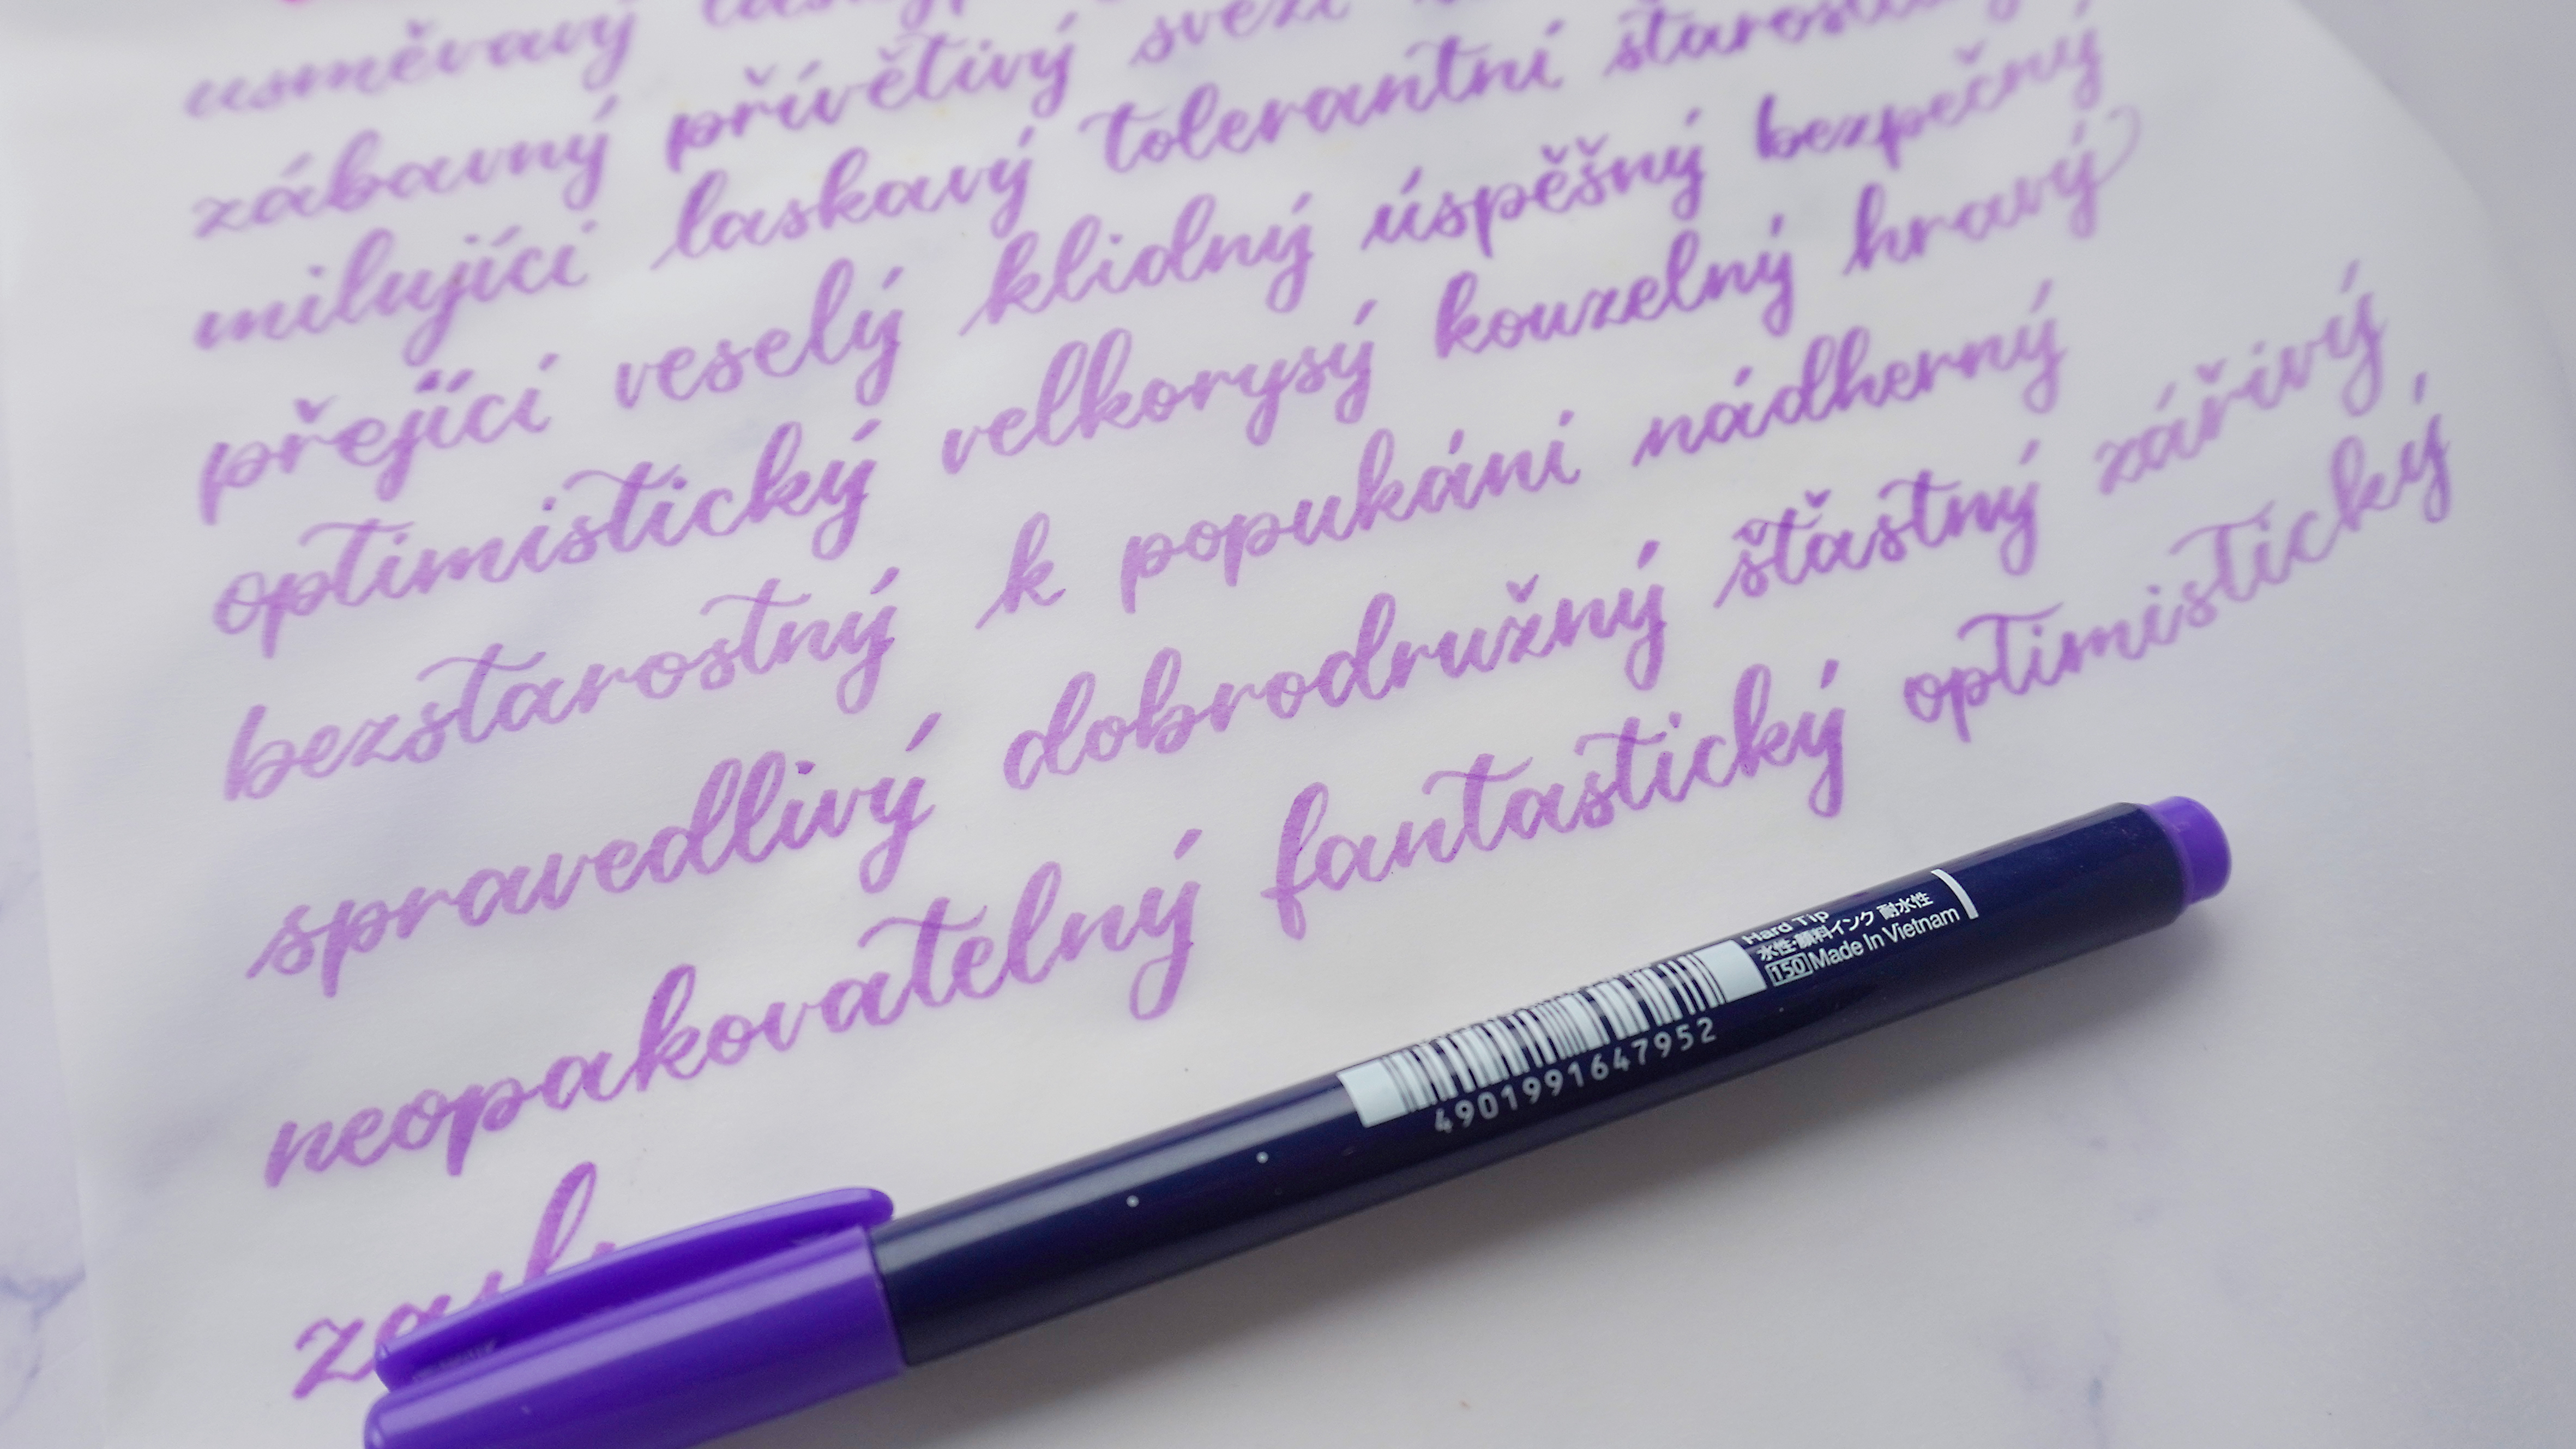 usměvavý
zábavný přívětivý svěží
milující laskavý tolerantní starostlivý
přející veselý klidný úspěšný bezpečný
optimistický velkorysý kouzelný hravý
bezstarostný k popukání nádherný
spravedlivý dobrodružný šťastný zářivý
neopakovatelný fantastický optimistický
Hard Tip
水性・顔料インク 耐水性
150 Made In Vietnam
4901991647952